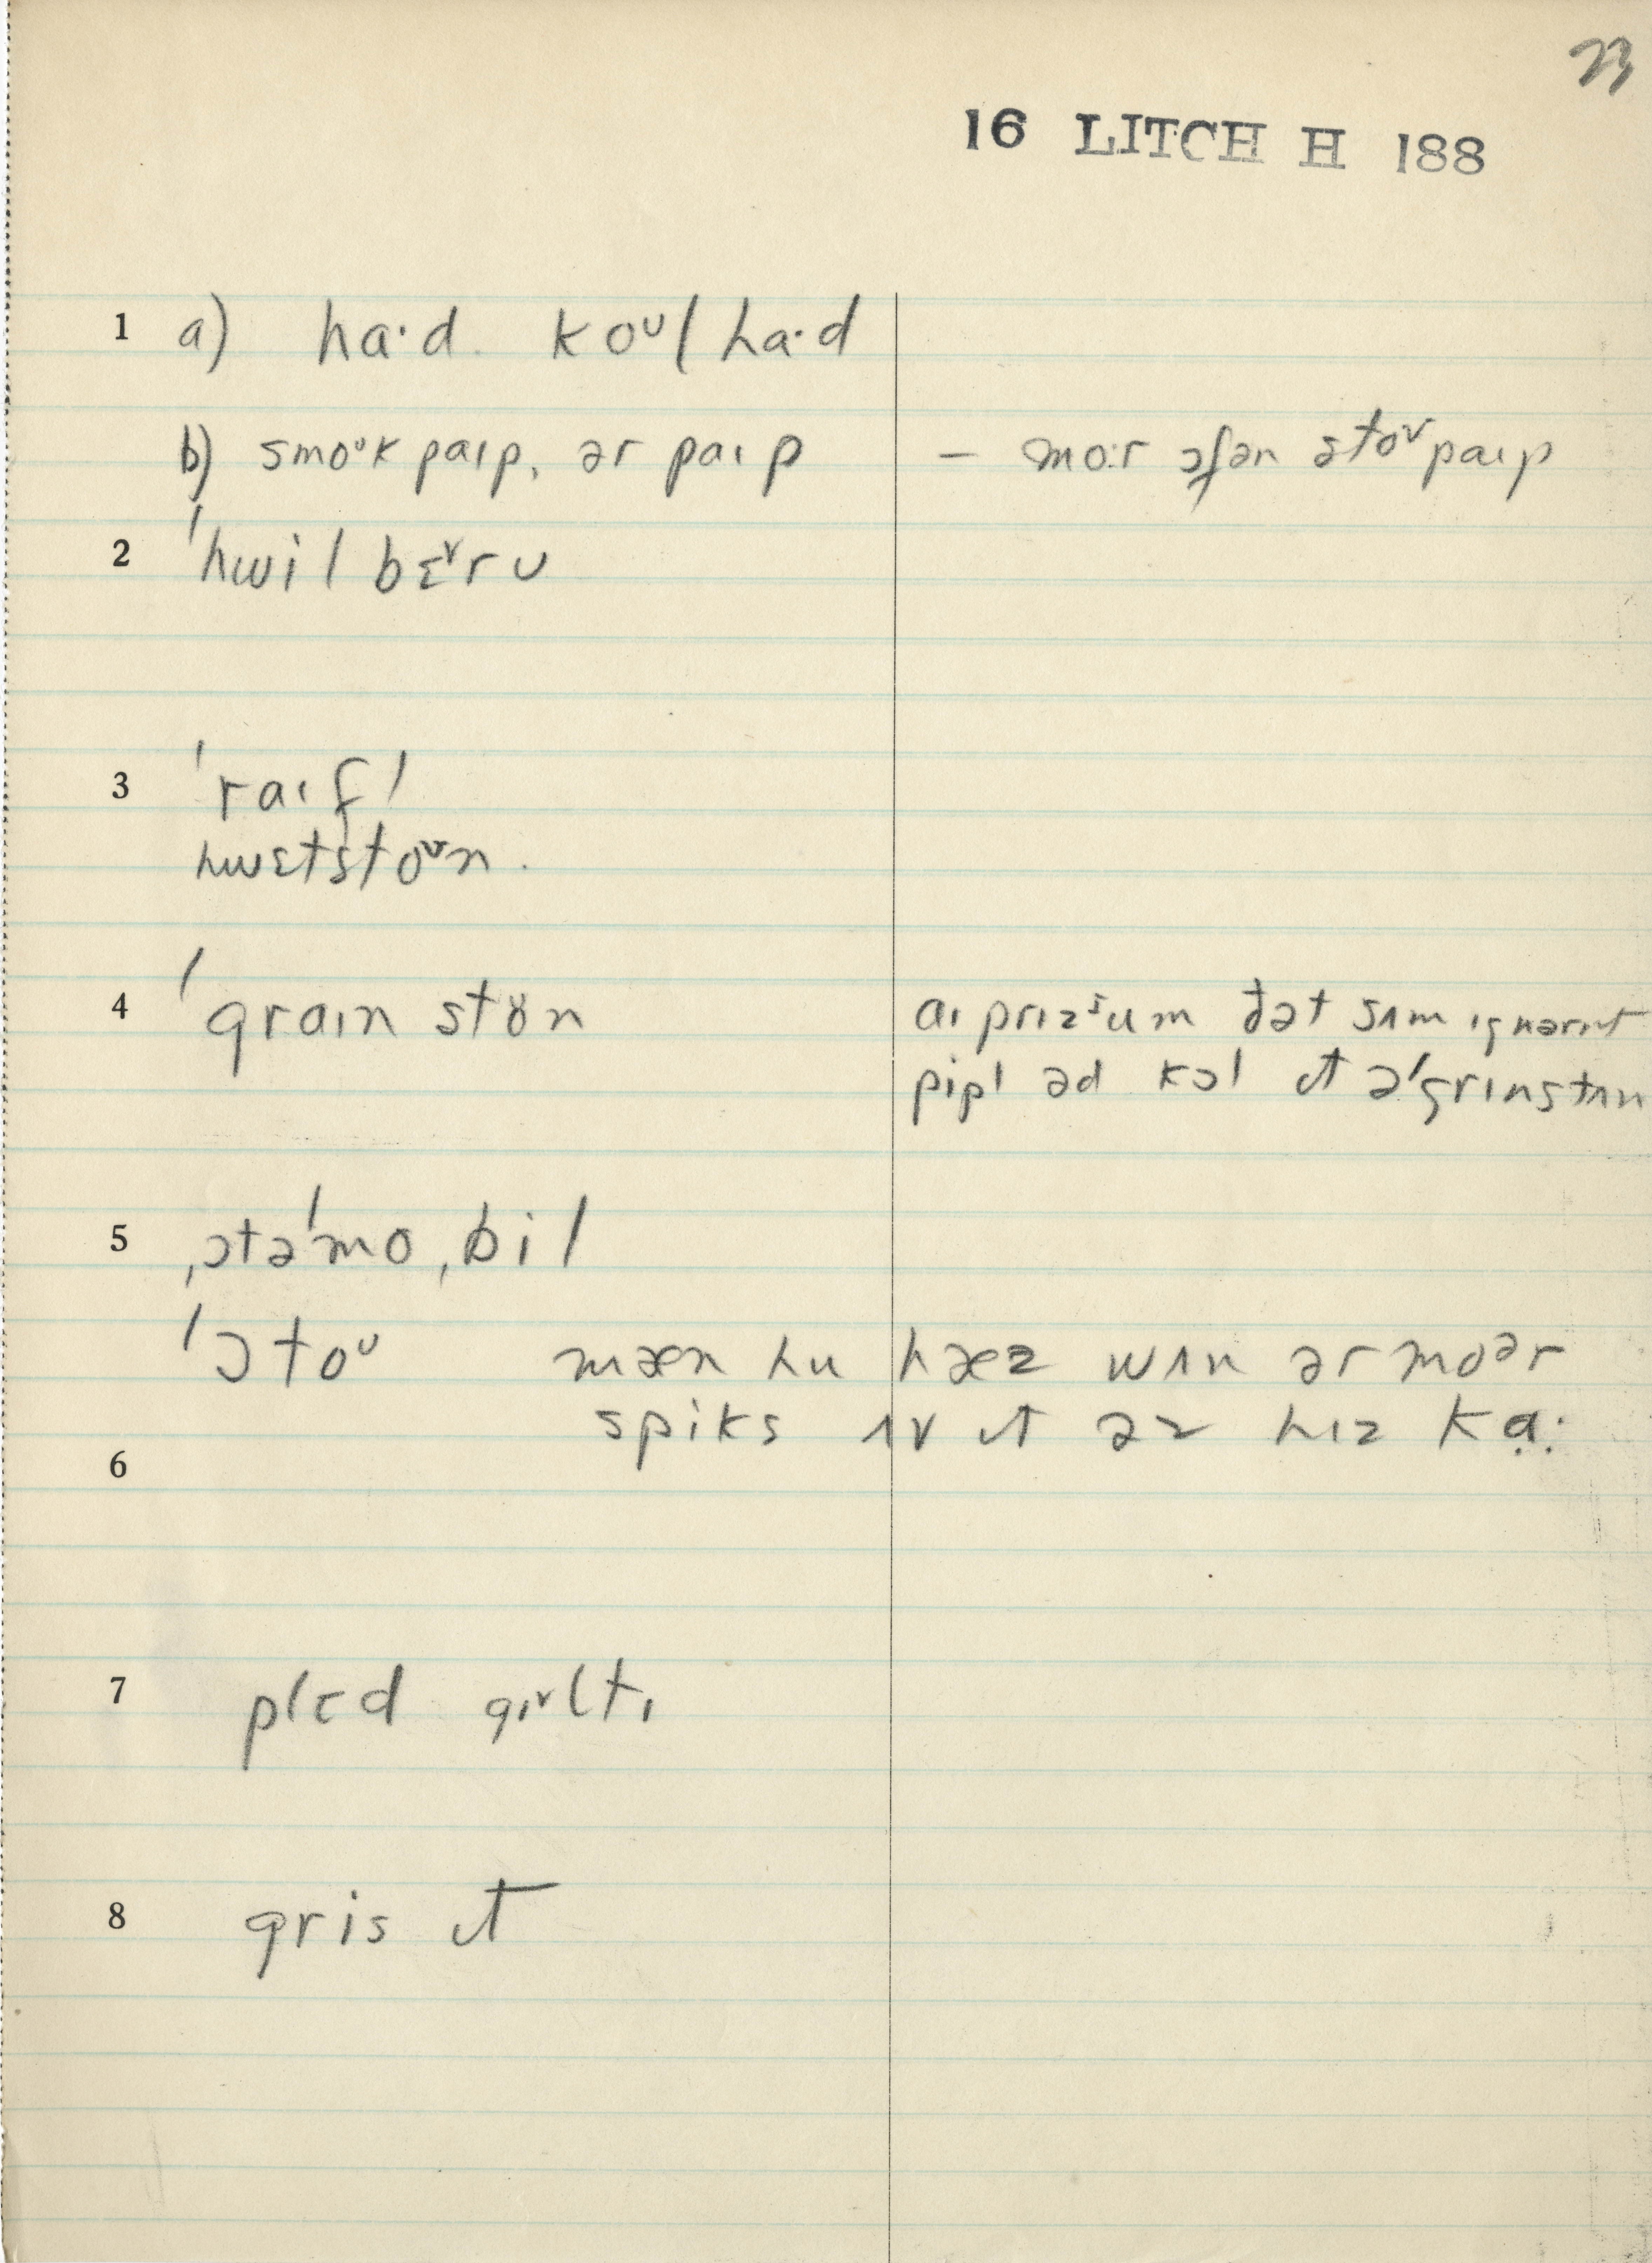 23
16 LITCH H 188
1 a) ha·d. koᴜl ha·d
b) smoᴜk paɪp, ər paɪp – mo:r ɔfən stoᴠpaɪp
2 ˈhwil bɛᵛrʊ
3 ˈraɪfl
hwɛtstoᴜn.
4 ˈgraɪn stɵn aɪ prɪzᶾum ðət sʌm ɪgnərnt
pipl əd kɔl ɪt ə ˈgrɪnstʌn
5 ˌɔtəˈmoˌbil
ˈɔtoᴜ mæn hu hæz wʌn ər moᵊr
spiks ʌv ɪt əz hɪz ka:
6
7 plɛd gɪᵛltɪ
8 gris ɪt